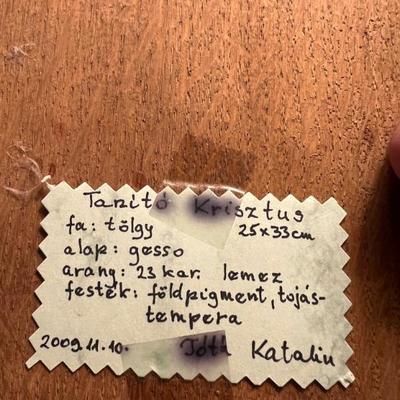 Tanító Krisztus
fa: tölgy 25x33cm
alap: gesso
arany: 23 kar. lemez
festék: földpigment, tojás-
tempera
2009.11.10. Tóth Katalin